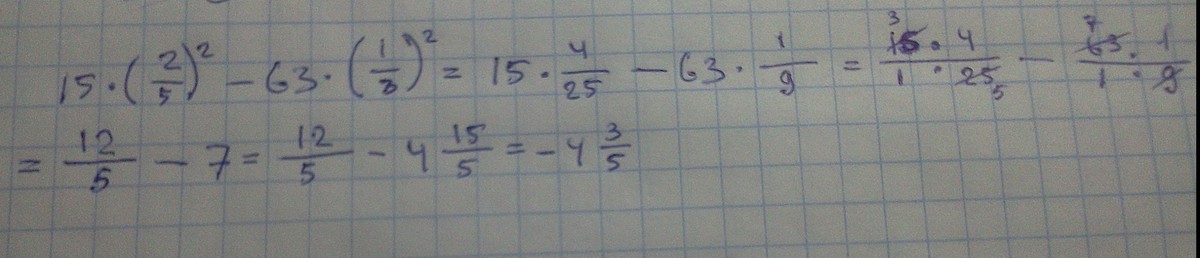 15·(2/5)² − 63·(1/3)² = 15·4/25 − 63·1/9 = 3 15·4/1·25 5 − 7 63·1/1·9
= 12/5 − 7 = 12/5 − 4 15/5 = −4 3/5